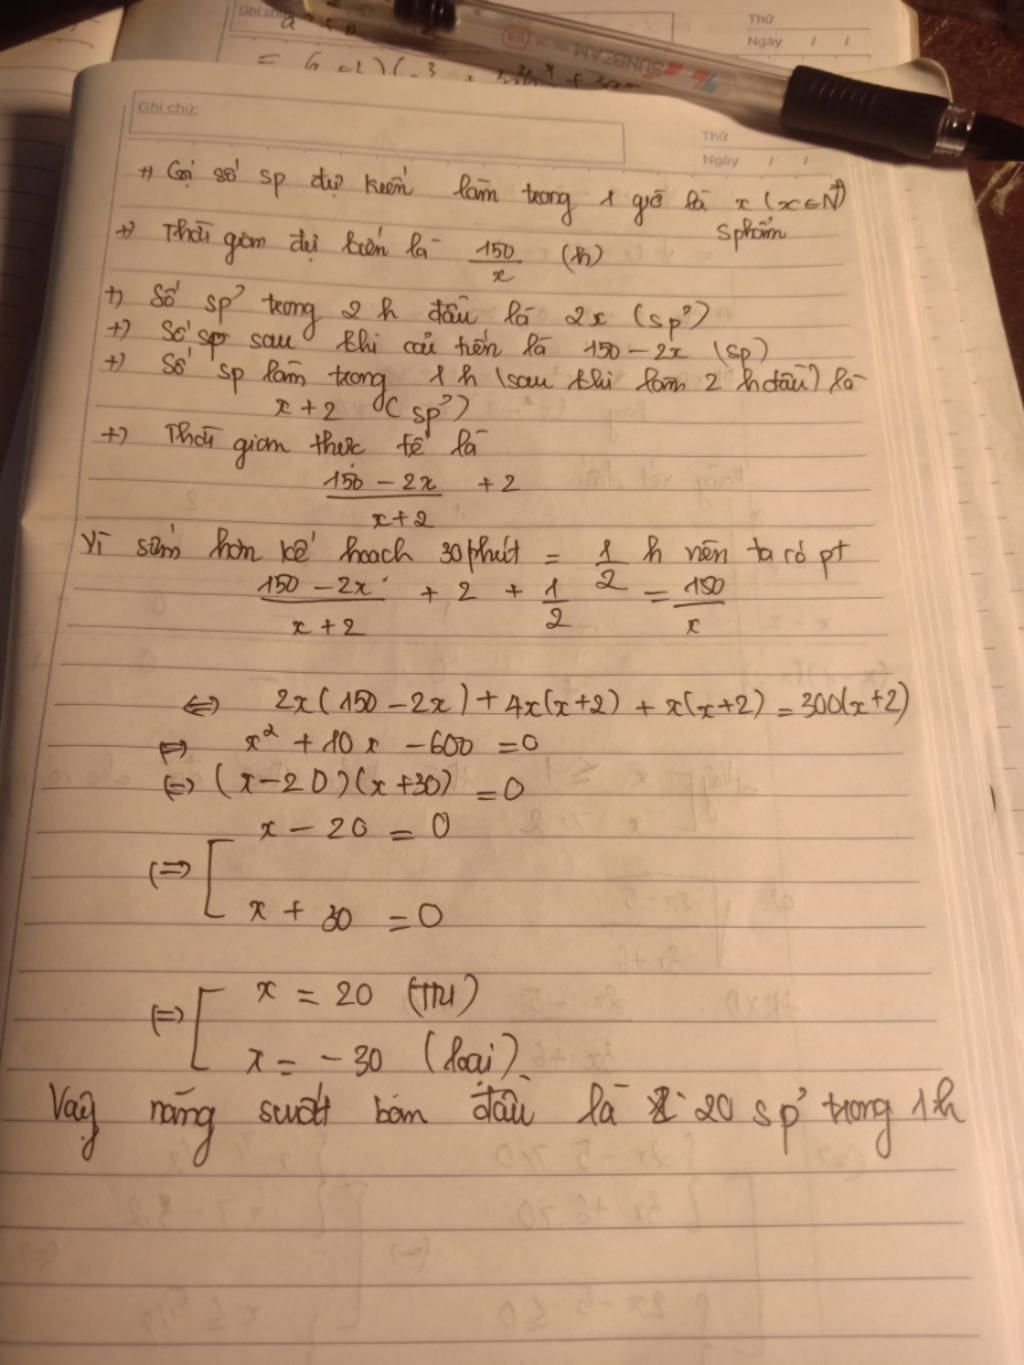 Thứ
Ngày / /
SUNBEAM
Ghi chú:
Thứ
Ngày / /
+) Gọi số sp dự kiến làm trong 1 giờ là x (x∈N*)
sphẩm
+) Thời gian dự kiến là 150/x (h)
+) Số sp' trong 2 h đầu là 2x (sp')
+) Số sp sau khi cải tiến là 150 - 2x (sp)
+) Số sp làm trong 1 h (sau khi làm 2 h đầu) là
x + 2 (sp')
+) Thời gian thực tế là
(150 - 2x)/(x+2) + 2
Vì sớm hơn kế hoạch 30 phút = 1/2 h nên ta có pt
(150 - 2x)/(x+2) + 2 + 1/2 = 150/x
<=> 2x(150 - 2x) + 4x(x+2) + x(x+2) = 300(x+2)
<=> x² + 10x - 600 = 0
(=) (x-20)(x+30) = 0
(=>) [ x - 20 = 0
x + 30 = 0
(=) [ x = 20 (TM)
x = -30 (loại)
Vậy năng suất ban đầu là 20 sp' trong 1h